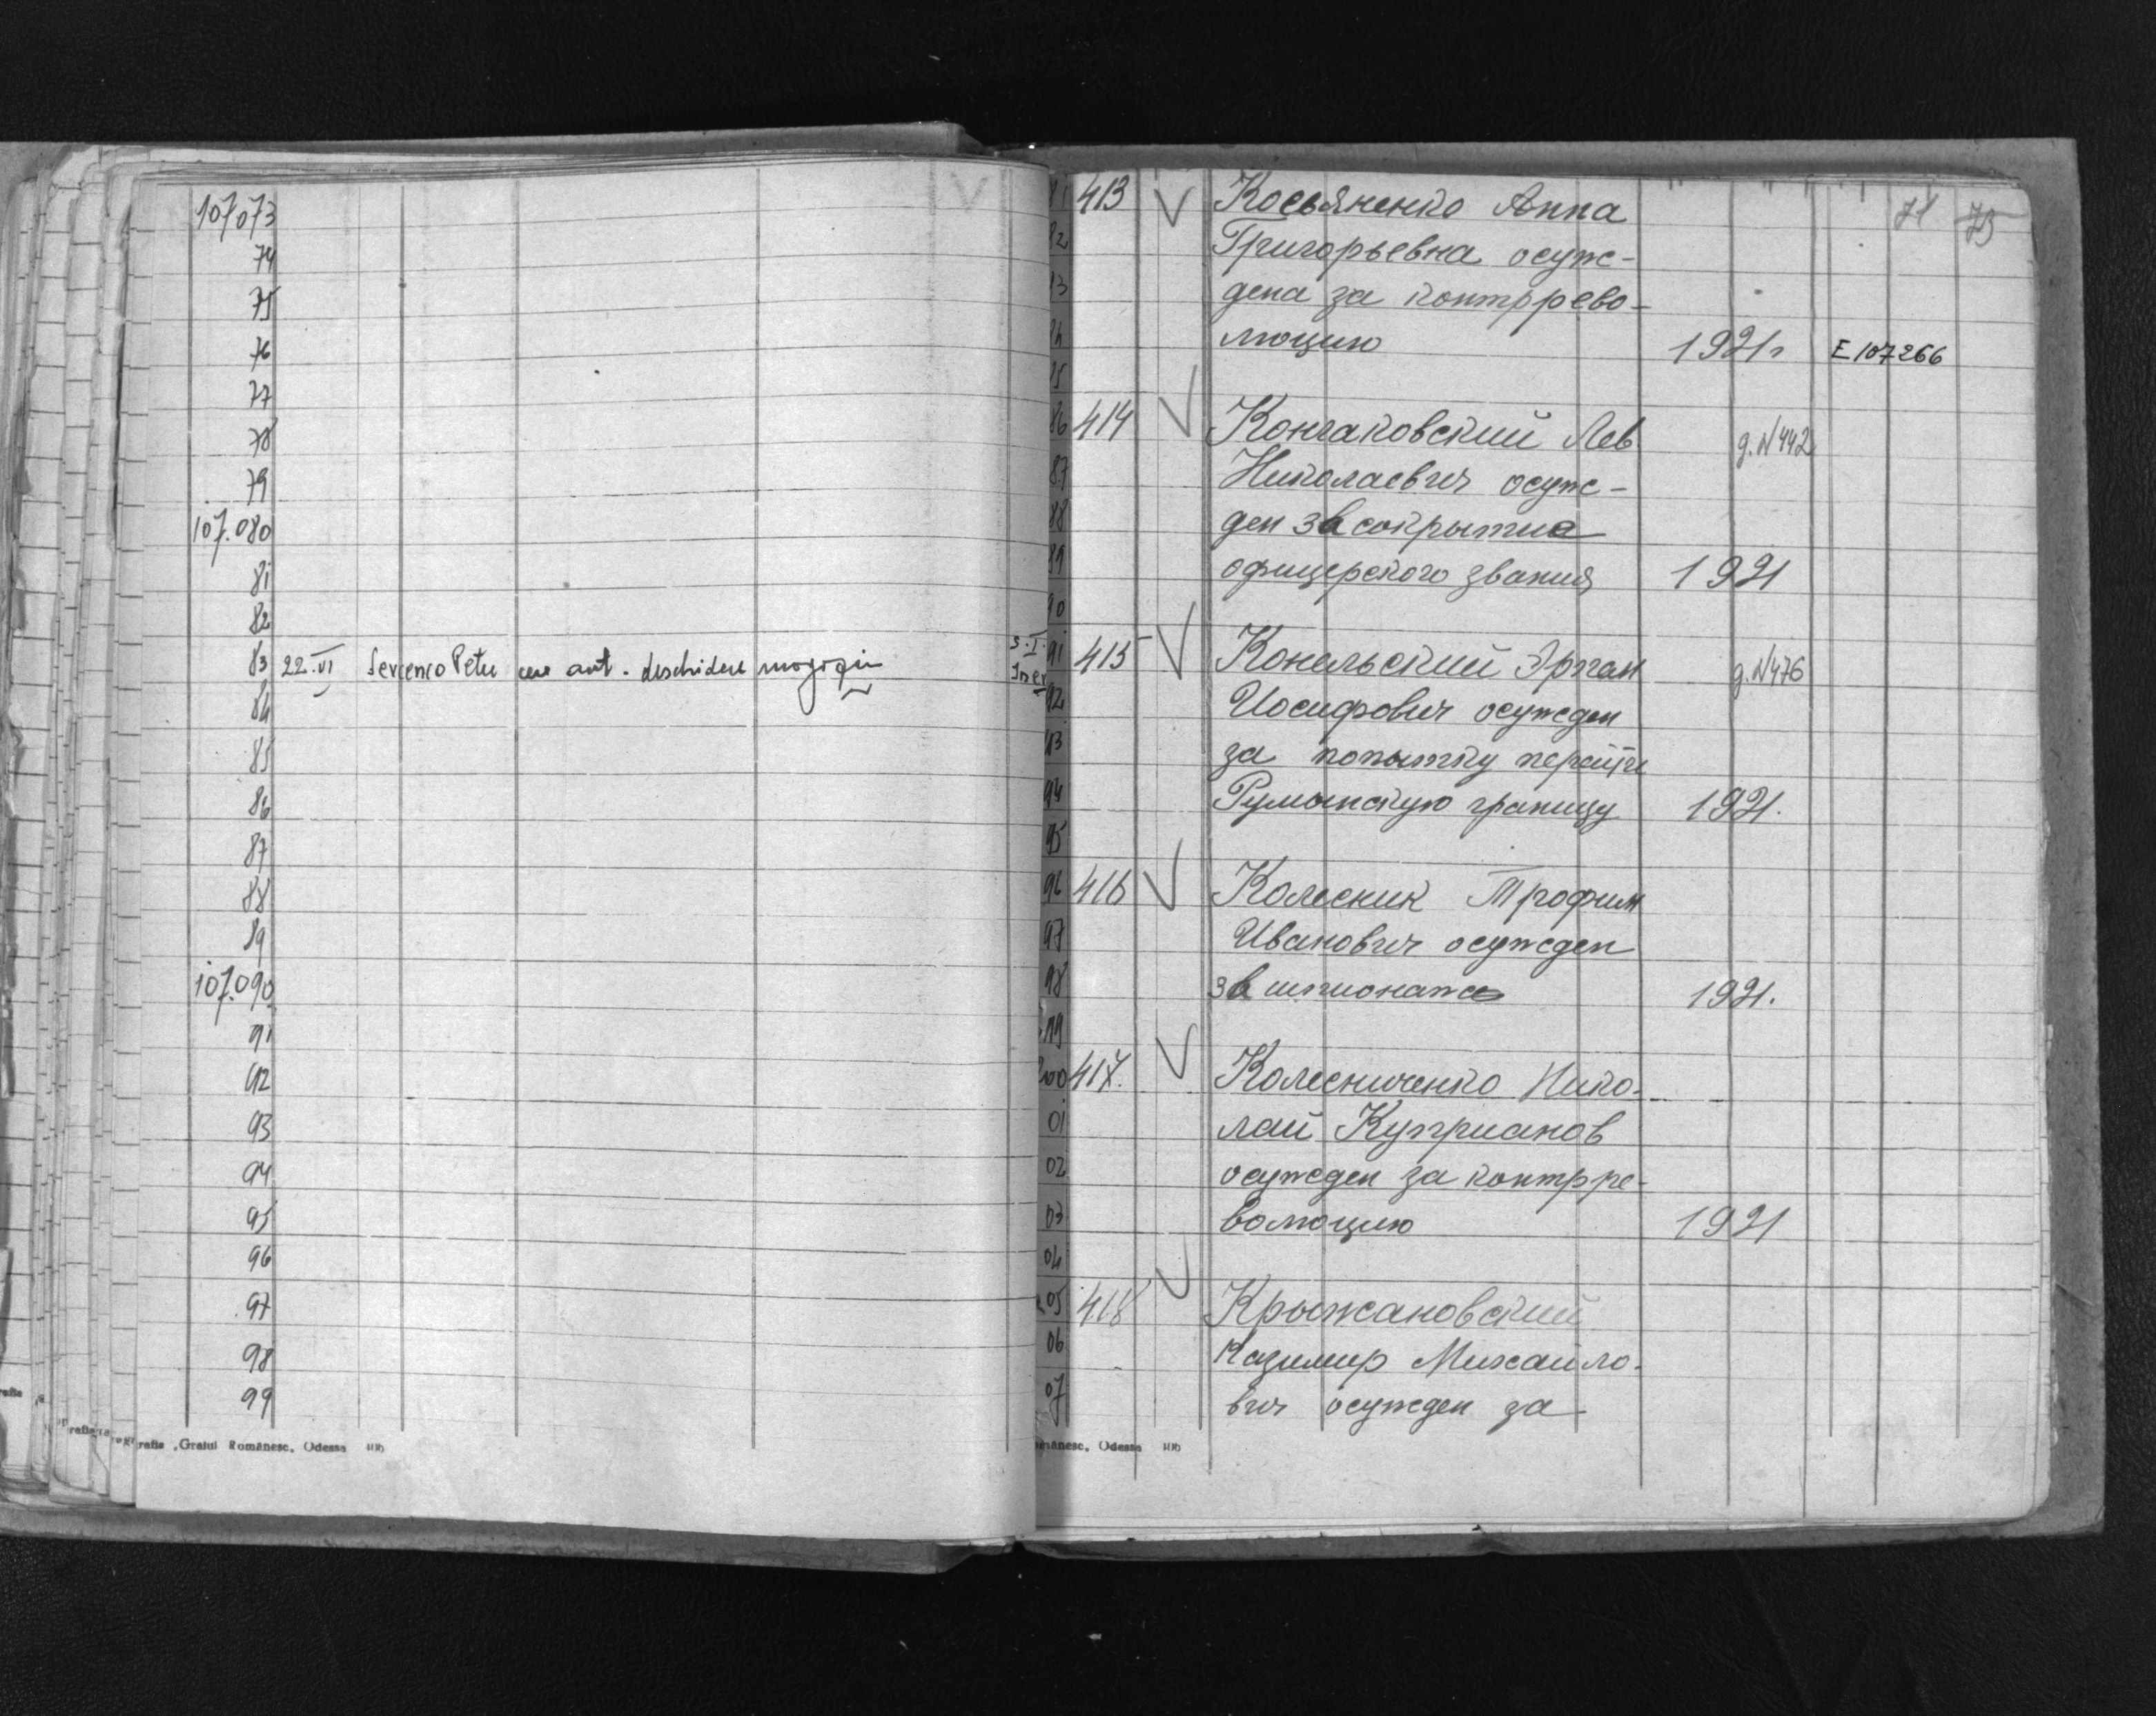 107.073
74
75
76
77
78
79
107.080
81
82
83 22.VI Sevcenco Petre cere aut. deschidere magazin
84
85
86
87
88
89
107.090
91
92
93
94
95
96
97
98
99
Graiul Românesc, Odessa
71 73
413 V Косьяненко Анна
Григорьевна осуж-
дена за контррево-
люцию 1921г E 107266
414 V Кончаковский Лев д.N442
Николаевич осуж-
ден за сокрытие
офицерского звания 1921
415 V Конельский д.N476
Иосифович осужден
за попытку перейти
Румынскую границу 1921.
416 V Колесник Трофим
Иванович осужден
за шпионаж 1921.
417. V Колесниченко Нико-
лай Куприанов
осужден за контрре-
волюцию 1921
418 V Крыжановский
Казимир Михайло-
вич осужден за
81
82
83
84
85
86
87
88
89
90
91
92
93
94
95
96
97
98
99
200
01
02
03
04
05
06
07
Odessa